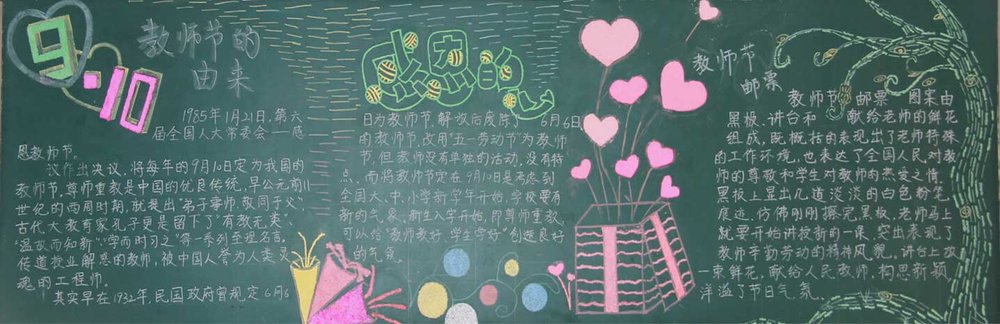 9·10
教师节的
由来
1985年1月21日，第六
届全国人大常委会一
恩教师节。
议作出决议，将每年的9月10日定为我国的
教师节。尊师重教是中国的优良传统，早公元前11
世纪的西周时期，就提出"弟子事师，敬同于父"
古代大教育家孔子更是留下了"有教无类"、
"温故而知新"、"学而时习之"等一系列至理名言。
传道授业解惑的教师，被中国人誉为人类灵
魂的工程师。
其实早在1932年，民国政府曾规定6月6
感恩
日为教师节，解放后废除了6月6日
的教师节，改用"五一"劳动节为教师
节，但教师没有单独的活动，没有特
点。而将教师节定在9月10日是考虑到
全国大、中、小学新学年开始，学校要有
新的气象。新生入学开始，即尊师重教，
可以给"教师教好、学生学好"创造良好
的气氛。
教师节
邮票
教师节邮票图案由
黑板、讲台和献给老师的鲜花
组成，既概括的表现出了老师特殊
的工作环境，也表达了全国人民对教
师的尊敬和学生对教师的热爱之情。
黑板上显出几道淡淡的白色粉笔
痕迹，仿佛刚刚擦完黑板，老师马上
就要开始讲授新的一课，突出表现了
教师辛勤劳动的精神风貌。讲台上放
一束鲜花，献给人民教师，构思新颖，
洋溢了节日气氛。